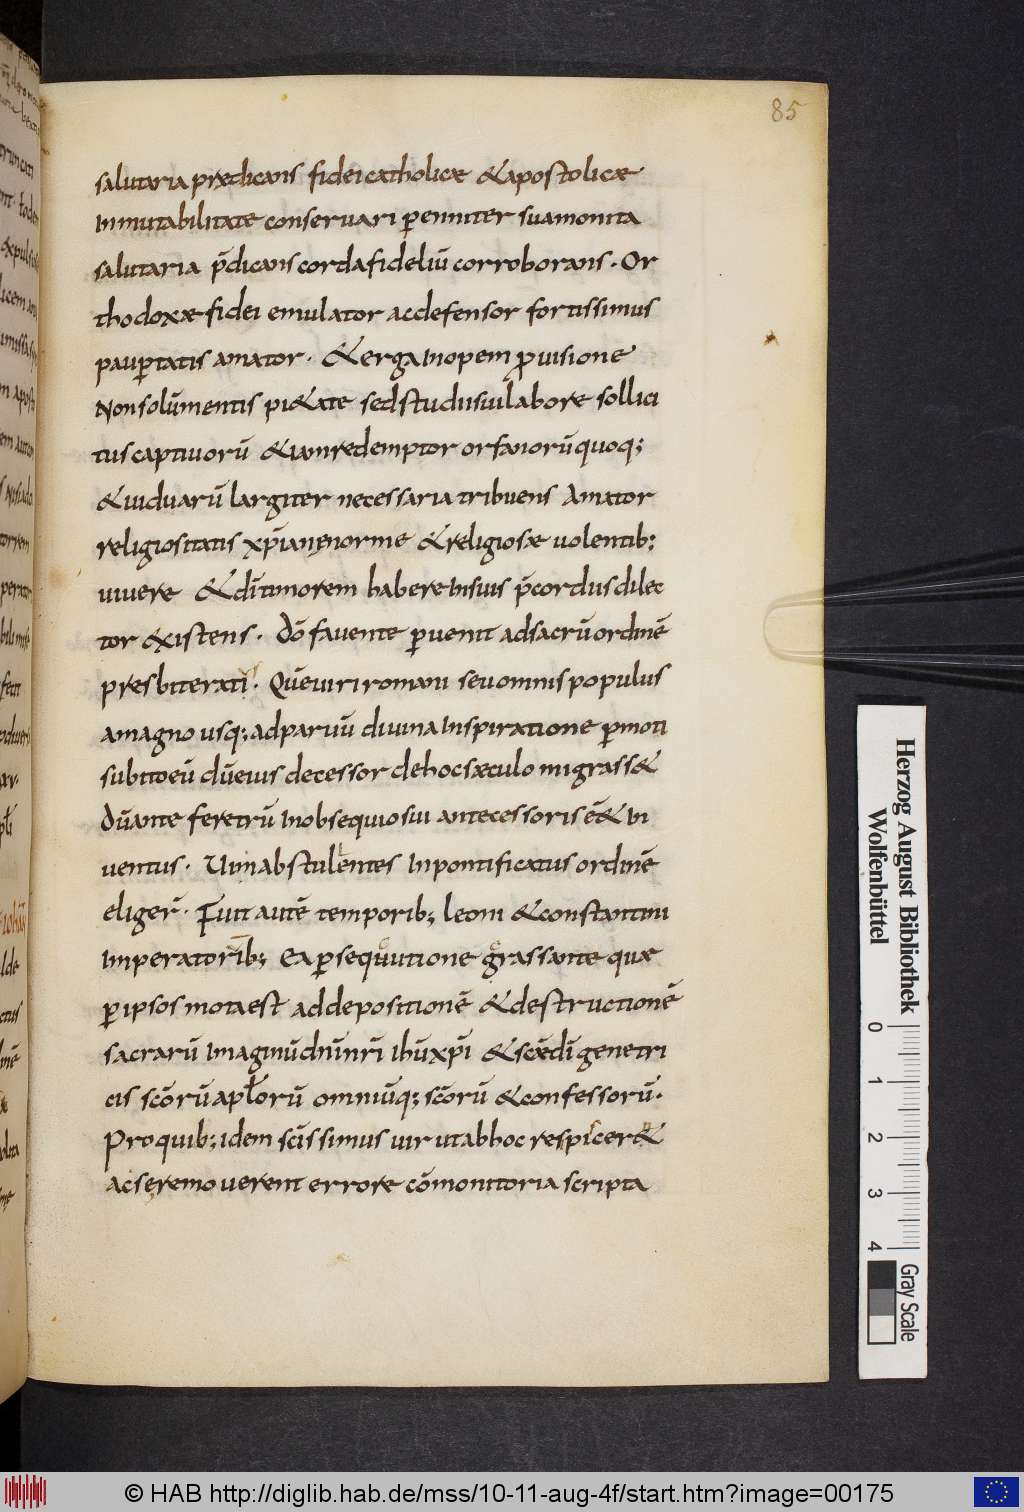 85
salutaria praedicans fidei catholicae & apostolicae
Inmutabilitate conservari p̲enniter sua monita
salutaria p̄dicans corda fideliū corroborans. Or
thodoxae fidei emulator ac defensor fortissimus
paup̲tatis amator. & erga Inopem ꝓvisione
Non solū mentis pi&ate sed studii sui labore sollici
tus captivorū & iam redemptor orfanorū quoq;
& viduarū largiter necessaria tribuens Amator
religiositatis xp̄ianę norme & religiosae volentib;
vivere & dī timorem habere In suis p̄cordiis dilec
tor existens. dō favente p̲venit ad sacrū ordinē
presbiterati. Quē viri romani seu omnis populus
a magno usq; ad parvū divina Inspiratione p̲moti
subito eū dū eius decessor de hoc saeculo migrass&
dū ante feretrū In obsequio sui antecessoris ēē& In
ventus. Uim abstulentes In pontificatus ordinē
eligerꝰ. Fuit autē temporib; leoni & constantini
Imperatorib; Ea p̲sequutione grassante quae
p̲ ipsos mota est ad depositionē & destructionē
sacrarū Imaginū dn̄i nr̄i ihū xp̄i & scae dī genetri
cis scōrū aplōrū omniūq; scōrū & confessorū.
Pro quib; idem scissimus vir ut ab hoc respicer&
ac se removerent errore cōmonitoria scripta
Herzog August Bibliothek
Wolfenbüttel
0 1 2 3 4
Gray Scale
© HAB http://diglib.hab.de/mss/10-11-aug-4f/start.htm?image=00175